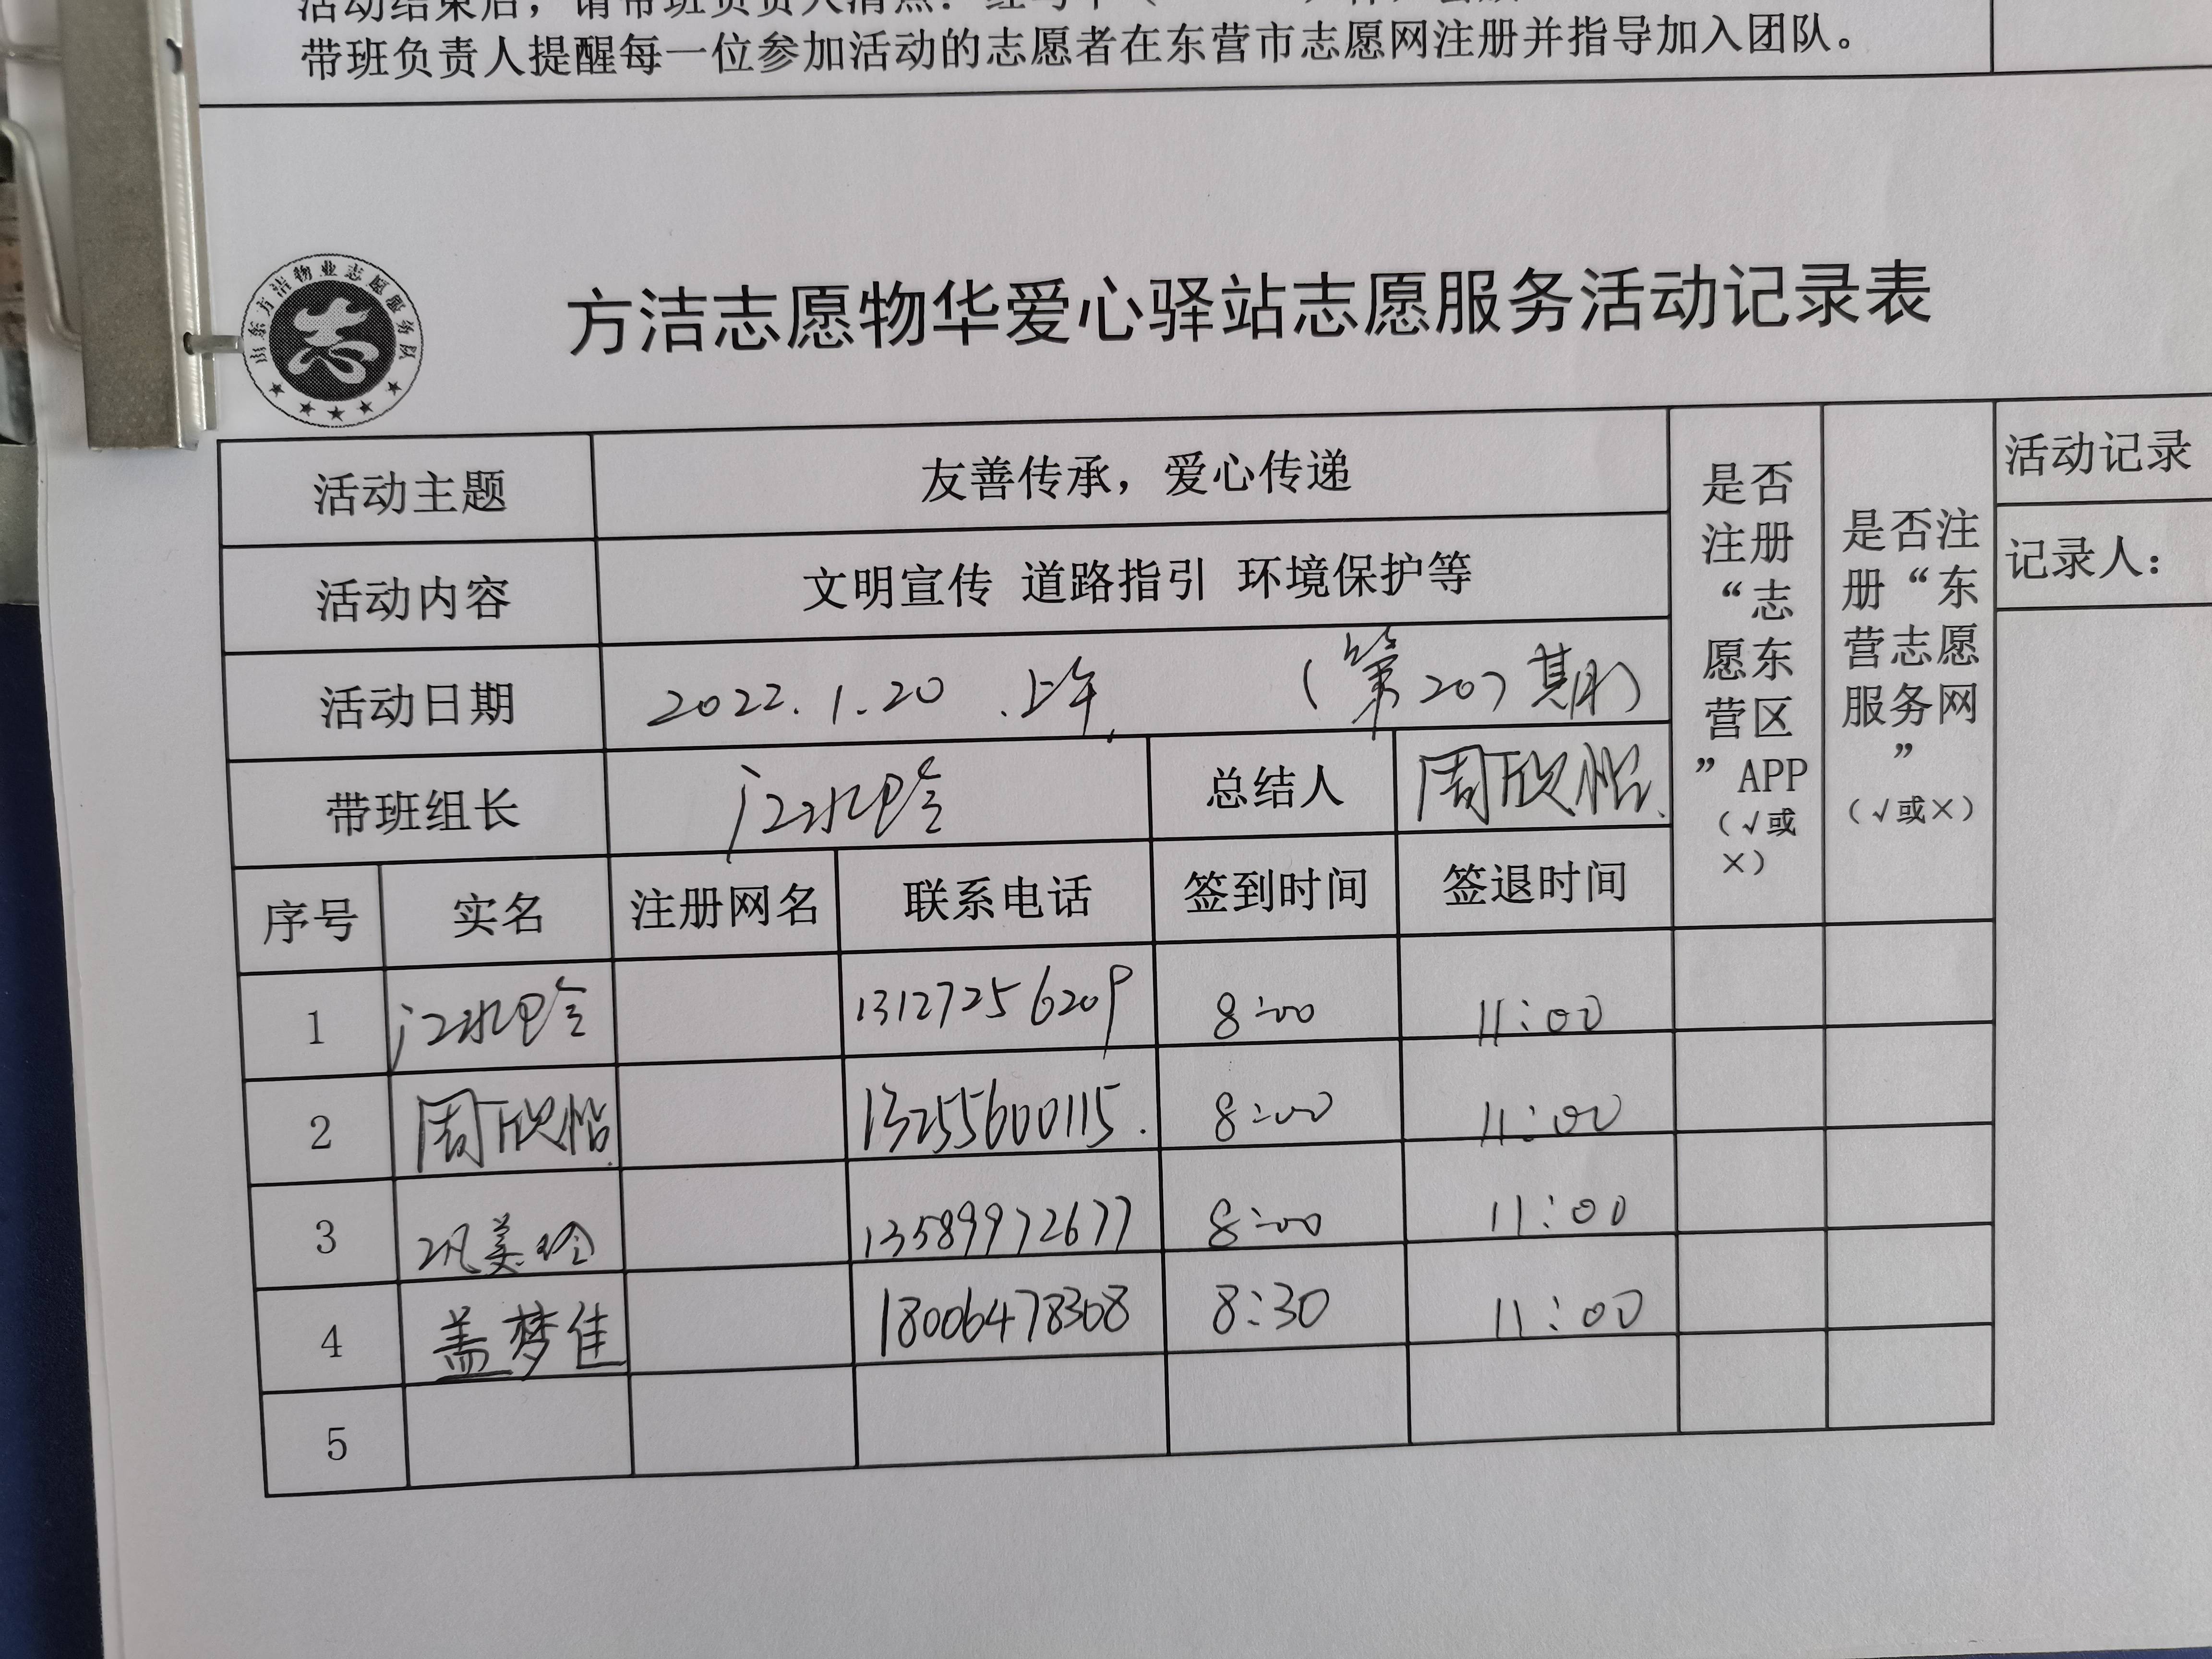 活动结束后，请带班负责人清点：红马甲（
带班负责人提醒每一位参加活动的志愿者在东营市志愿网注册并指导加入团队。
山东方洁物业志愿服务队
方洁志愿物华爱心驿站志愿服务活动记录表
活动主题 友善传承，爱心传递
活动内容 文明宣传 道路指引 环境保护等
活动日期 2022.1.20 上午 （第207期）
带班组长 总结人 周欣怡
是否注册“志愿东营区”APP（√或×）
是否注册“东营志愿服务网”（√或×）
活动记录
记录人：
序号 实名 注册网名 联系电话 签到时间 签退时间
1 13127256209 8:00 11:00
2 周欣怡 13255600115 8:00 11:00
3 13589972677 8:00 11:00
4 盖梦佳 18006478308 8:30 11:00
5